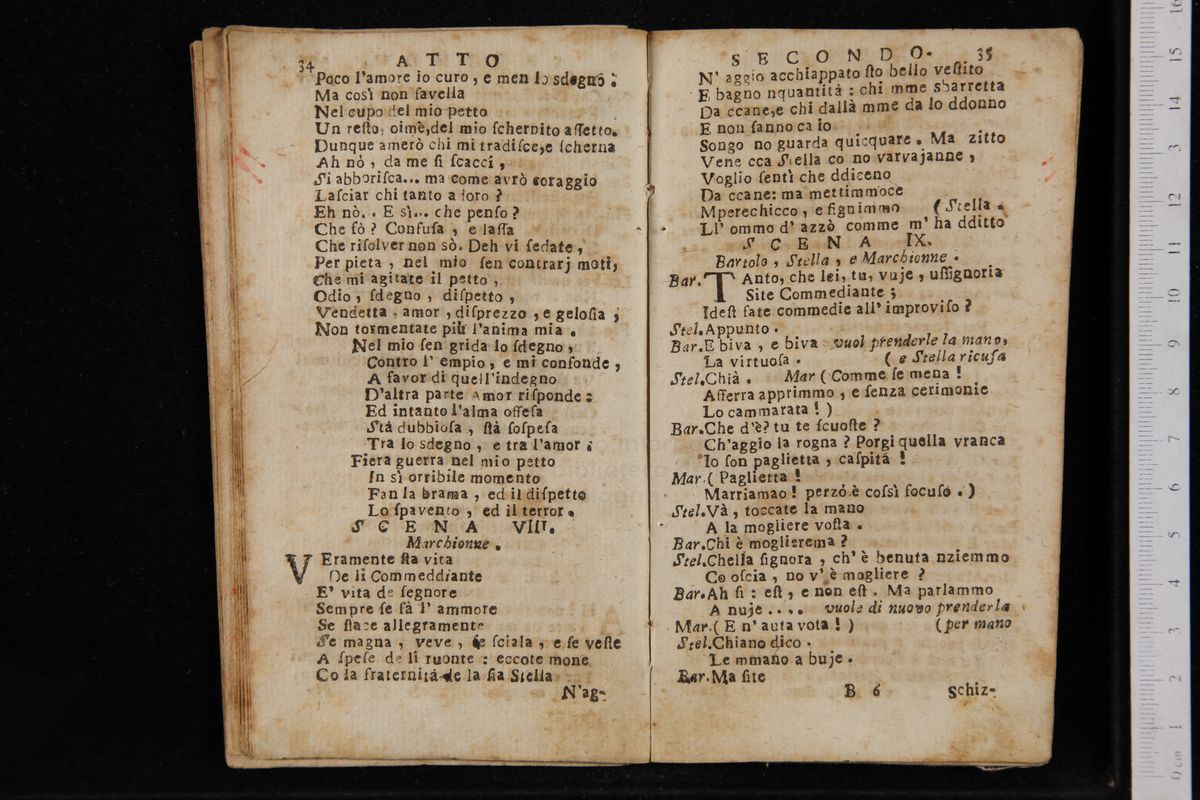 34
A T T O
Poco l'amore io curo , e men lo sdegno :
Ma così non favella
Nel cupo del mio petto
Un reſto, oimè, del mio ſchernito affetto.
Dunque amerò chi mi tradiſce, e ſcherna
Ah nò , da me ſi ſcacci ,
Si abboriſca... ma come avrò coraggio
Laſciar chi tanto adoro ?
Eh nò. . E sì... che penſo ?
Che fò ? Confuſa , e laſſa
Che riſolver non sò. Deh vi ſedate ,
Per pieta , nel mio ſen contrarj moti,
Che mi agitate il petto ,
Odio , ſdegno , diſpetto ,
Vendetta , amor , diſprezzo , e geloſia ;
Non tormentate più l'anima mia .
Nel mio ſen grida lo ſdegno ,
Contro l' empio , e mi confonde ,
A favor di quell'indegno
D'altra parte Amor riſponde :
Ed intanto l'alma offeſa
Stà dubbioſa , ſtà ſoſpeſa
Tra lo sdegno , e tra l'amor .
Fiera guerra nel mio petto
In sì orribile momento
Fan la brama , ed il diſpetto
Lo ſpavento , ed il terror .
S C E N A VIII.
Marchionne .
VEramente ſta vita
De li Commeddiante
E' vita de ſegnore
Sempre ſe fà l' ammore
Se ſtace allegramente
Se magna , veve , ſe ſciala , e ſe veſte
A ſpeſe de li ruonte : eccote mone
Co la fraternità de la ſia Stella
N'ag-
S E C O N D O. 35
N' aggio acchiappato ſto bello veſtito
E bagno nquantità : chi mme sbarretta
Da ccane, e chi dallà mme da lo ddonno
E non ſanno ca io
Songo no guarda quicquare . Ma zitto
Vene cca Stella co no varvajanne ,
Voglio ſentì che ddiceno
Da ccane: ma mettimmoce
Mperechicco , e fignimmo ( Stella .
Ll' ommo d' azzò comme m' ha dditto
S C E N A IX.
Bartolo , Stella , e Marchionne .
Bar. TAnto, che lei, tu, vuje , uſſignoria
Site Commediante ;
Ideſt fate commedie all' improviſo ?
Stel. Appunto .
Bar. E biva , e biva vuol prenderle la mano,
La virtuoſa . ( e Stella ricuſa
Stel. Chià . Mar ( Comme ſe mena !
Afferra apprimmo , e ſenza cerimonie
Lo cammarata ! )
Bar. Che d'è? tu te ſcuoſte ?
Ch'aggio la rogna ? Porgi quella vranca
Io ſon paglietta , caſpita !
Mar. ( Paglietta !
Marriamao ! perzò è coſsì focuſo . )
Stel. Và , toccate la mano
A la mogliere voſta .
Bar. Chi è moglierema ?
Stel. Chella ſignora , ch' è benuta nziemmo
Co oſcia , no v' è mogliere ?
Bar. Ah ſi : eſt , e non eſt . Ma parlammo
A nuje . . . . vuole di nuovo prenderla
Mar. ( E n' auta vota ! ) (per mano
Stel. Chiano dico .
Le mmano a buje .
Bar. Ma ſite
B 6 Schiz-